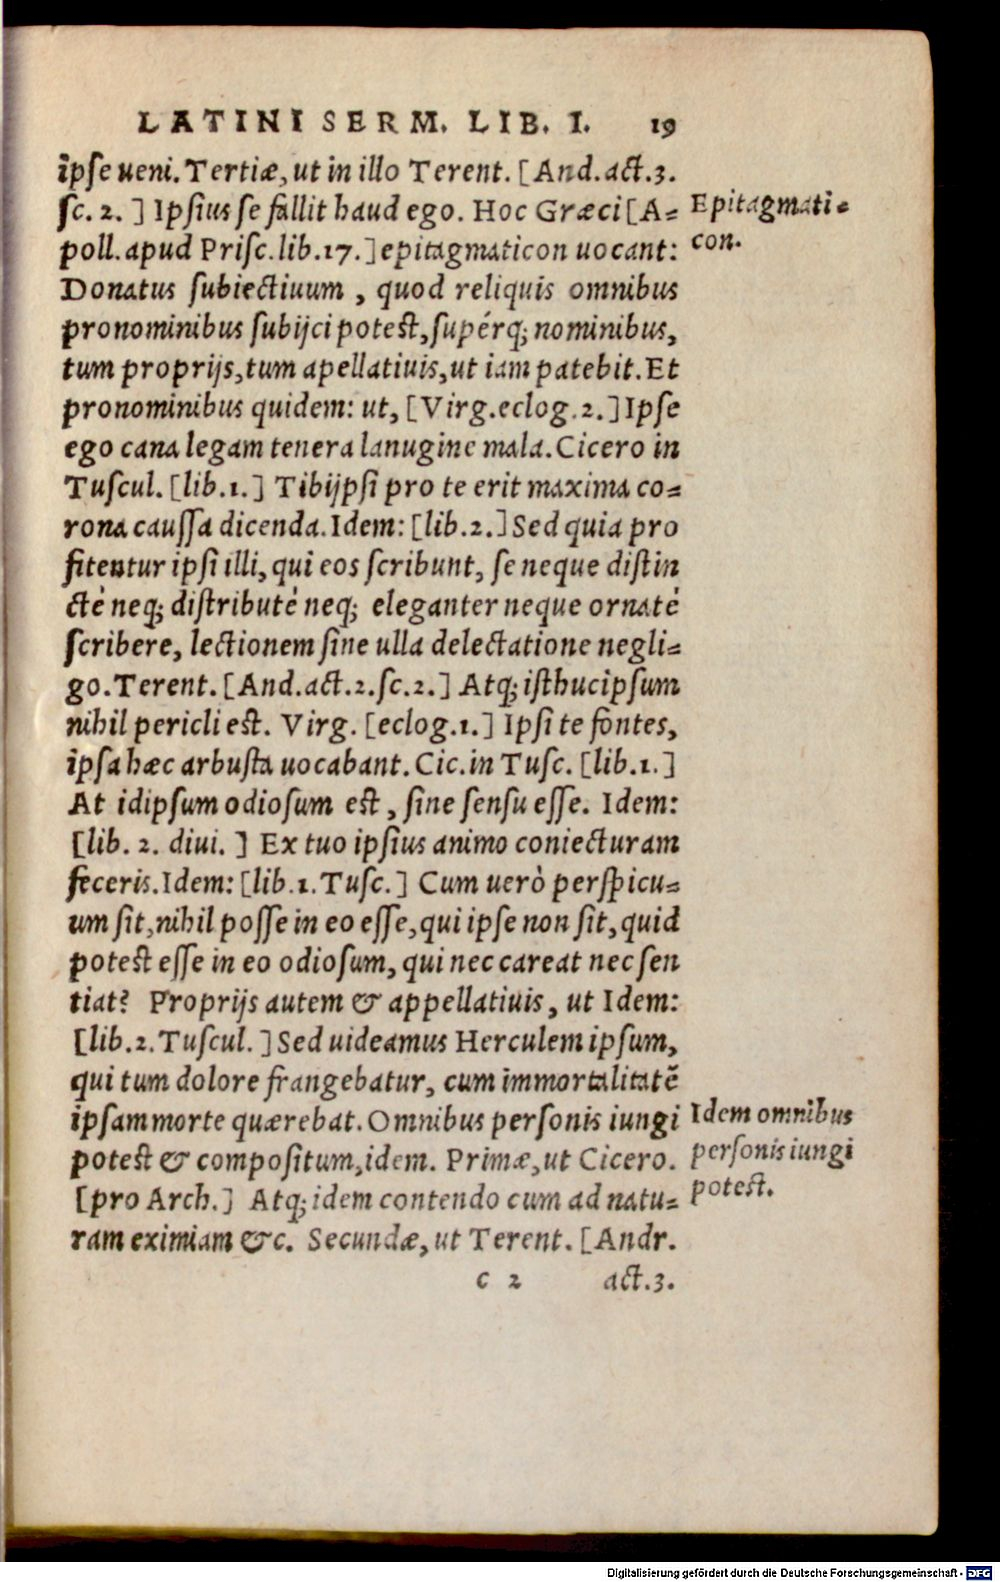 LATINI SERM. LIB. I. 19
ipse ueni. Tertiæ, ut in illo Terent. [And. act. 3.
sc. 2. ] Ipsius se fallit haud ego. Hoc Græci [A-
poll. apud Prisc. lib. 17.] epitagmaticon uocant:
Donatus subiectiuum, quod reliquis omnibus
pronominibus subijci potest, supérq; nominibus,
tum proprijs, tum apellatiuis, ut iam patebit. Et
pronominibus quidem: ut, [Virg. eclog. 2.] Ipse
ego cana legam tenera lanugine mala. Cicero in
Tuscul. [lib. 1.] Tibijpsi pro te erit maxima co-
rona caussa dicenda. Idem: [lib. 2.] Sed quia pro
fitentur ipsi illi, qui eos scribunt, se neque distin
ctè neq; distributè neq; eleganter neque ornatè
scribere, lectionem sine ulla delectatione negli-
go. Terent. [And. act. 2. sc. 2.] Atq; isthuc ipsum
nihil pericli est. Virg. [eclog. 1.] Ipsi te fontes,
ipsa hæc arbusta uocabant. Cic. in Tusc. [lib. 1.]
At idipsum odiosum est, sine sensu esse. Idem:
[lib. 2. diui. ] Ex tuo ipsius animo coniecturam
feceris. Idem: [lib. 1. Tusc.] Cum uerò perspicu-
um sit, nihil posse in eo esse, qui ipse non sit, quid
potest esse in eo odiosum, qui nec careat nec sen
tiat? Proprijs autem & appellatiuis, ut Idem:
[lib. 2. Tuscul. ] Sed uideamus Herculem ipsum,
qui tum dolore frangebatur, cum immortalitatē
ipsam morte quærebat. Omnibus personis iungi
potest & compositum, idem. Primæ, ut Cicero.
[pro Arch.] Atq; idem contendo cum ad natu-
ram eximiam &c. Secundæ, ut Terent. [Andr.
c 2 act. 3.
Epitagmati-
con.
Idem omnibus
personis iungi
potest.
Digitalisierung gefördert durch die Deutsche Forschungsgemeinschaft - DFG